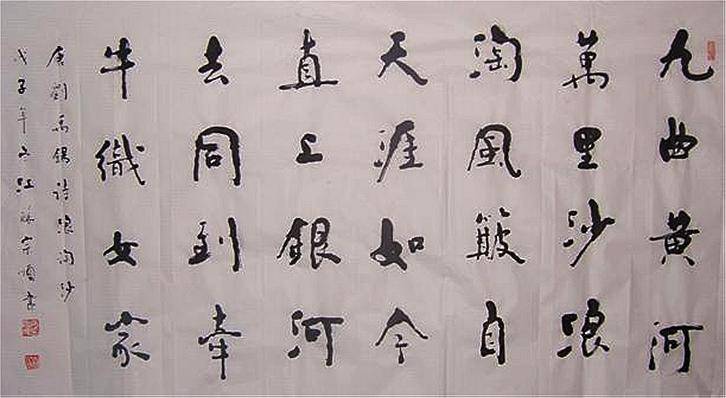 九曲黄河
萬里沙浪
淘風簸自
天涯如今
直上銀河
去同到牽
牛織女家
唐劉禹錫詩浪淘沙
戊子年江宗順書